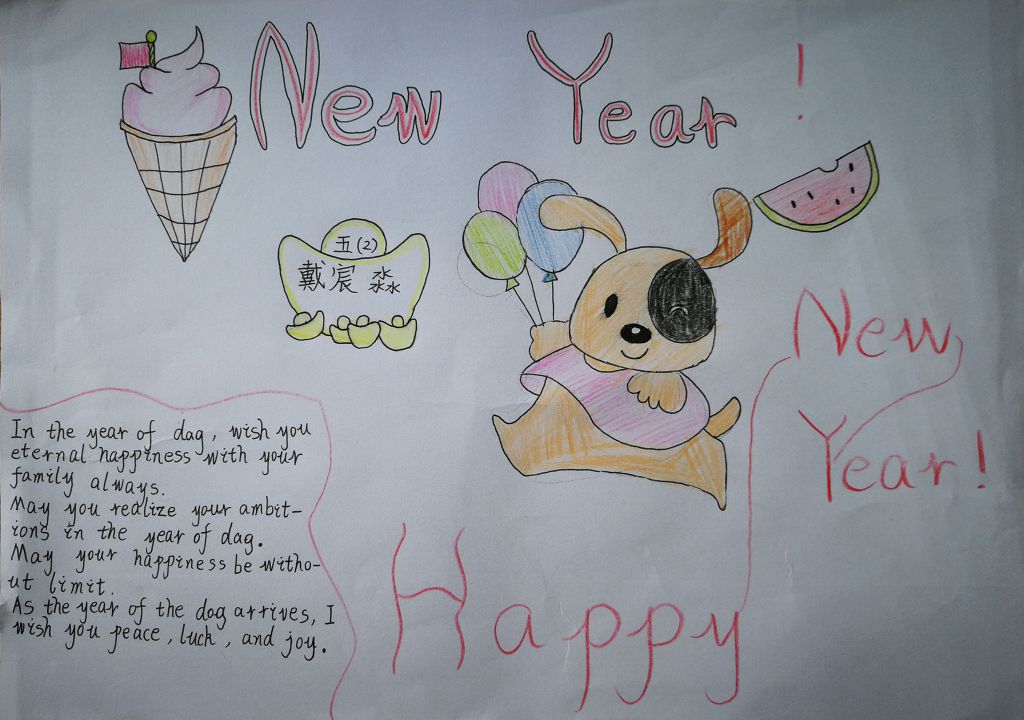 New Year!
五(2)
戴宸淼
New
Year!
Happy
In the year of dag, wish you
eternal happiness with your
family always.
May you realize your ambit-
ions in the year of dag.
May your happiness be witho-
ut limit.
As the year of the dog arrives, I
wish you peace, luch, and joy.